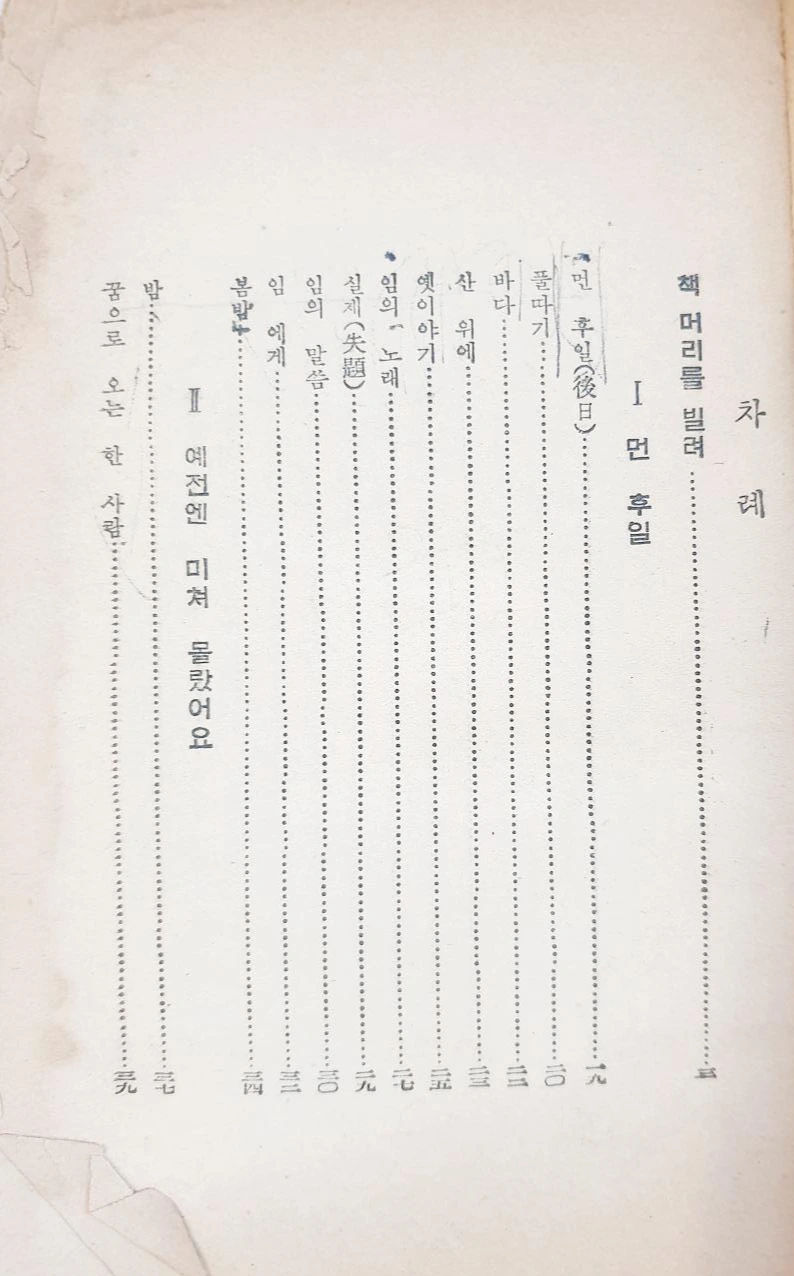 차 례
책 머리를 빌려 三
Ⅰ 먼 후일
먼 후일(後日) 一九
풀따기 二〇
바다 二二
산 위에 二三
옛이야기 二五
임의 노래 二七
실제(失題) 二九
임의 말씀 三〇
임 에게 三二
봄밤 三四
Ⅱ 예전엔 미쳐 몰랐어요
밤 三七
꿈으로 오는 한 사람 三九